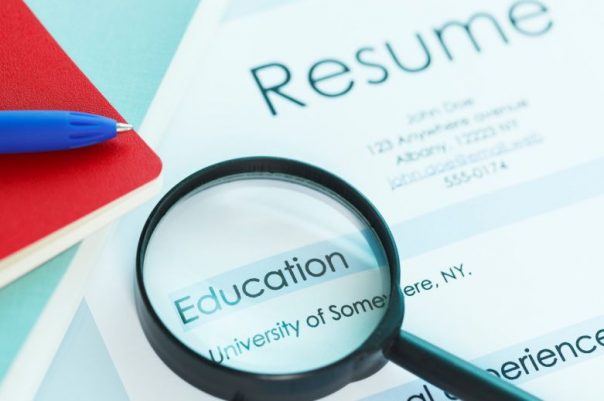 Resume
John Doe
123 Anywhere avenue
Albany, 12223 NY
john.doe@email.web
555-0174
Education
University of Somewhere, NY.
al experience